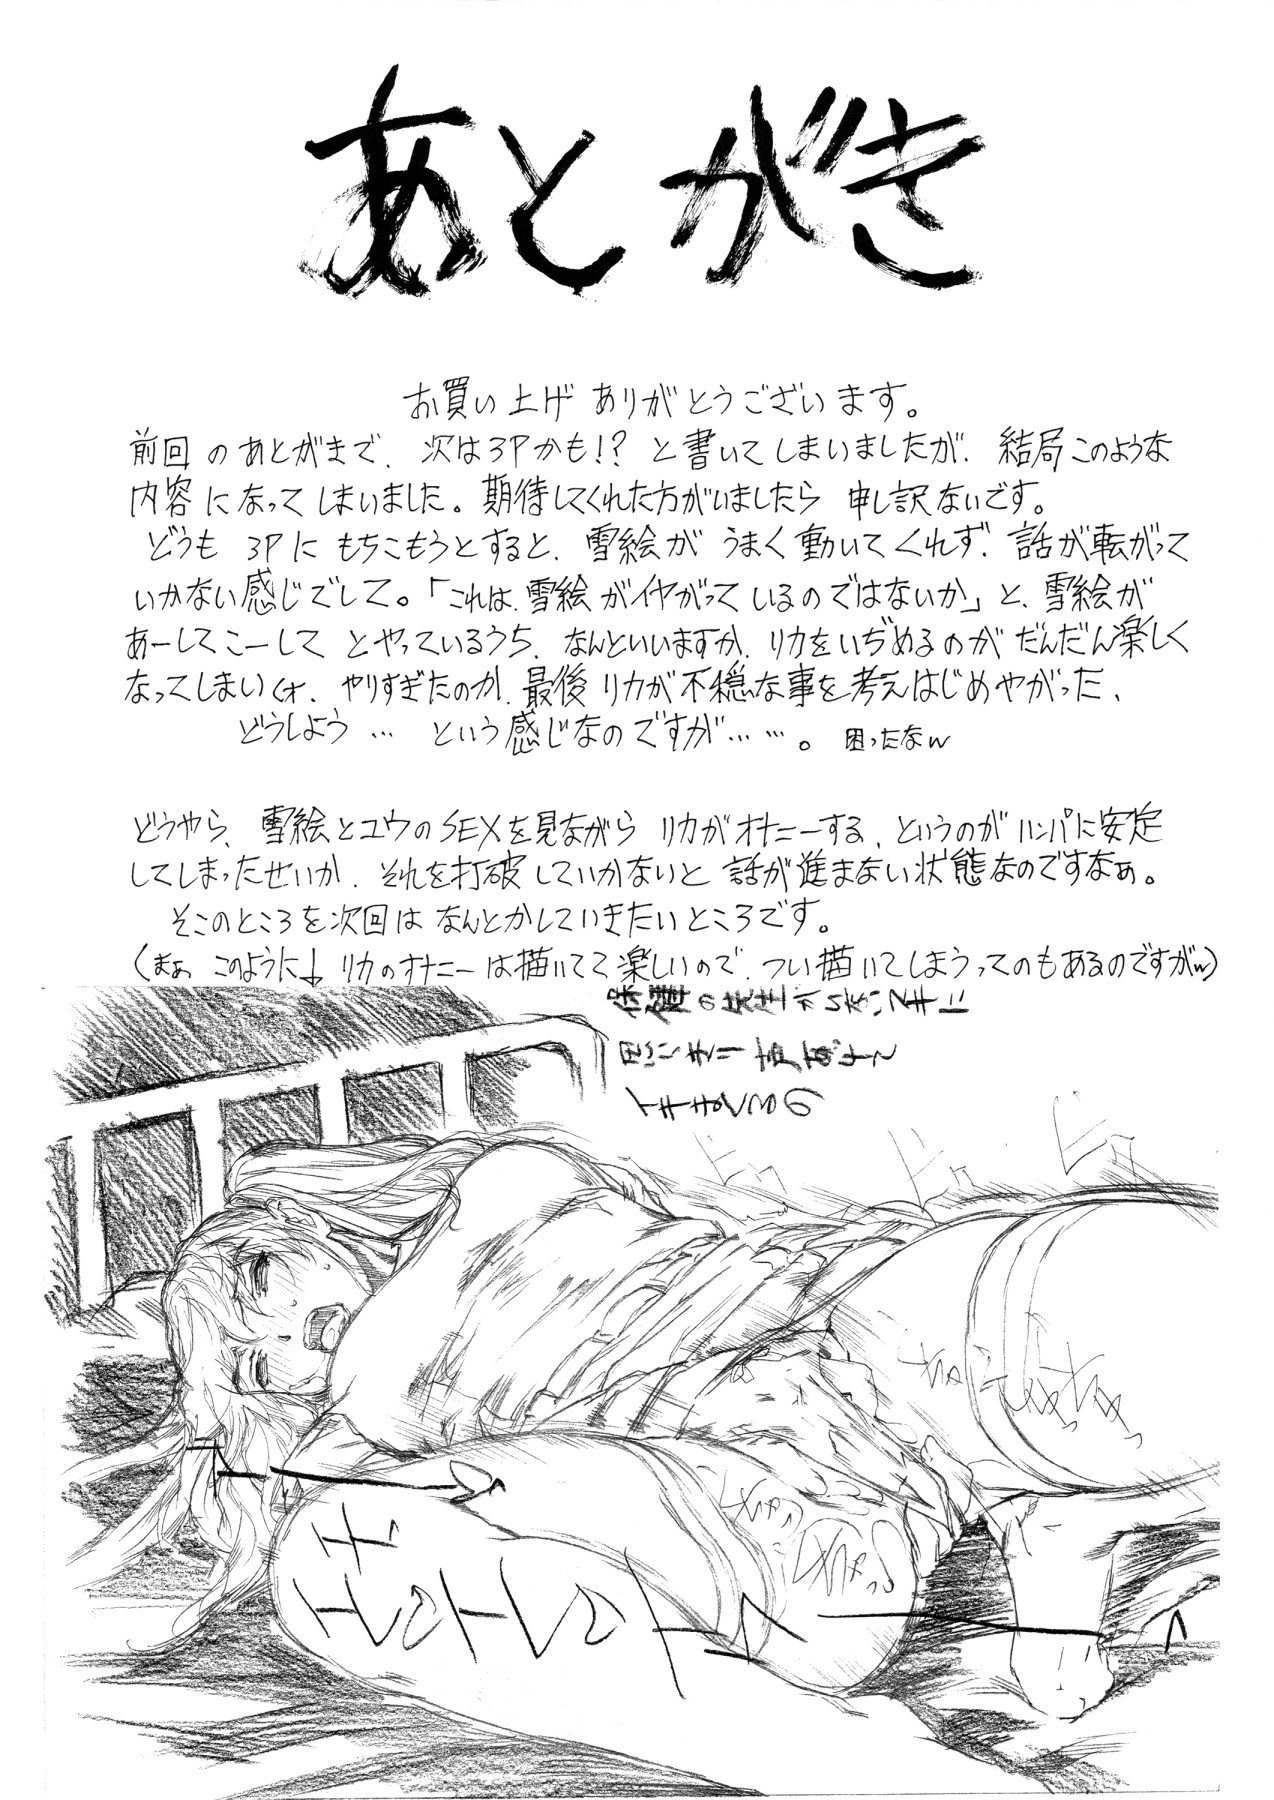 あとがき
お買い上げありがとうございます。
前回のあとがきで、次は3Pかも!?と書いてしまいましたが、結局このような
内容になってしまいました。期待してくれた方がいましたら申し訳ないです。
どうも3Pにもちこもうとすると、雪絵がうまく動いてくれず、話が転がって
いかない感じでして。「これは、雪絵がイヤがっているのではないか」と、雪絵が
あーしてこーしてとやっているうち、なんといいますか、リカをいぢめるのがだんだん楽しく
なってしまい(ォ、やりすぎたのか、最後リカが不穏な事を考えはじめやがった、
どうしよう…という感じなのですが……。困ったなw
どうやら、雪絵とユウのSEXを見ながらリカがオナニーする、というのがハンパに安定
してしまったせいか、それを打破していかないと話が進まない状態なのですなぁ。
そこのところを次回はなんとかしていきたいところです。
(まぁこのように↓リカのオナニーは描いてて楽しいので、つい描いてしまうってのもあるのですがw)